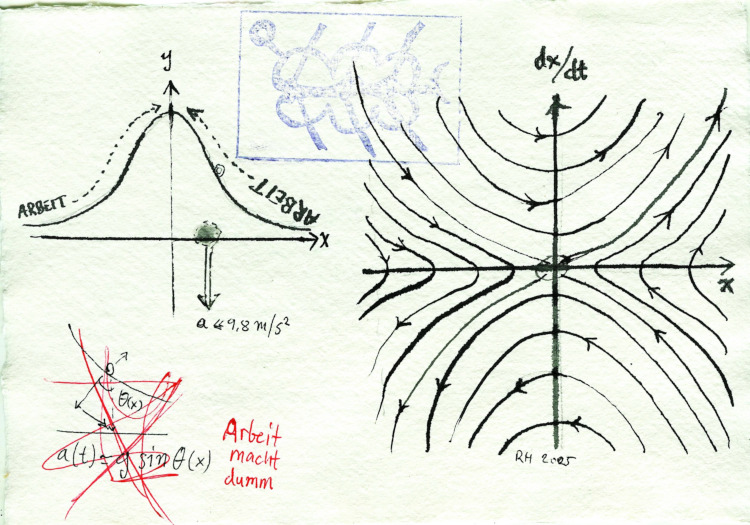 y
dx/dt
ARBEIT
ARBEIT
x
x
a ≪ 9,8 m/s²
θ(x)
a(t) = g sin θ(x)
Arbeit
macht
dumm
RH 2005